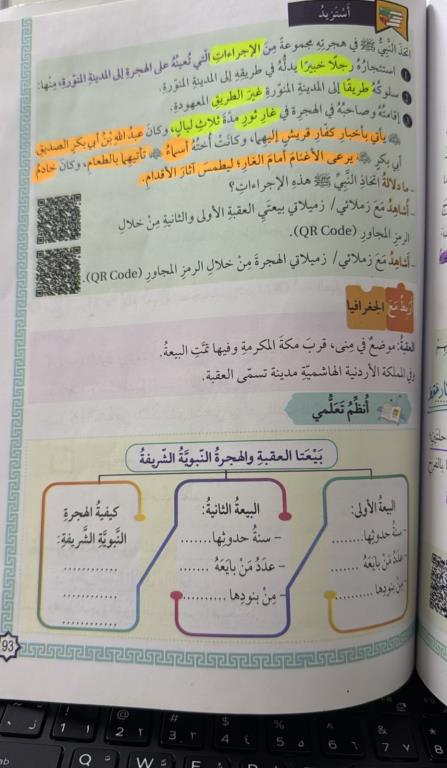 أَسْتَزيدُ
اتخذَ النَّبِيُّ ﷺ في هجرتِهِ مجموعةً مِنَ الإجراءاتِ الّتي تُعينُهُ على الهجرةِ إلى المدينةِ المنوّرةِ، مِنْها:
1 استئجارُهُ رجلًا خبيرًا يدلُّهُ في طريقِهِ إلى المدينةِ المنوّرةِ.
2 سلوكُهُ طريقًا إلى المدينةِ المنوّرةِ غيرَ الطريقِ المعهودةِ.
3 إقامتُهُ وصاحبُهُ في الهجرةِ في غارِ ثورٍ مدّةَ ثلاثِ ليالٍ، وكانَ عبدُ اللهِ بنُ أبي بكرٍ الصديقِ
يأتي بأخبارِ كفّارِ قريشٍ إليهِما، وكانَتْ أختُهُ أسماءُ تأتيهِما بالطعامِ، وكانَ خادمُ
أبي بكرٍ يرعى الأغنامَ أمامَ الغارِ؛ ليطمسَ آثارَ الأقدامِ.
- ما دلالةُ اتخاذِ النَّبِيِّ ﷺ هذهِ الإجراءاتِ؟
- أُشاهِدُ مَعَ زملائي/ زميلاتي بيعتَيِ العقبةِ الأولى والثانيةِ مِنْ خلالِ
الرمزِ المجاورِ (QR Code).
- أُشاهِدُ مَعَ زملائي/ زميلاتي الهجرةَ مِنْ خلالِ الرمزِ المجاورِ (QR Code).
أَرْبِطُ مَعَ الجغرافيا
العقبةُ: موضعٌ في مِنى، قربَ مكةَ المكرمةِ وفيها تمّتِ البيعةُ.
وفي المملكةِ الأردنيةِ الهاشميّةِ مدينة تسمّى العقبة.
أُنظِّمُ تَعَلُّمي
بَيْعَتا العقبةِ والهجرةُ النّبويّةُ الشّريفةُ
البيعةُ الأولى:
- سنةُ حدوثِها............
- عَدَدُ مَنْ بايَعَهُ ............
- مِنْ بنودِها ............
البيعةُ الثانيةُ:
- سنةُ حدوثِها........
- عَدَدُ مَنْ بايَعَهُ ........
- مِنْ بنودِها ............
كيفيةُ الهجرةِ
النّبويّةِ الشّريفةِ:
............
............
............
93